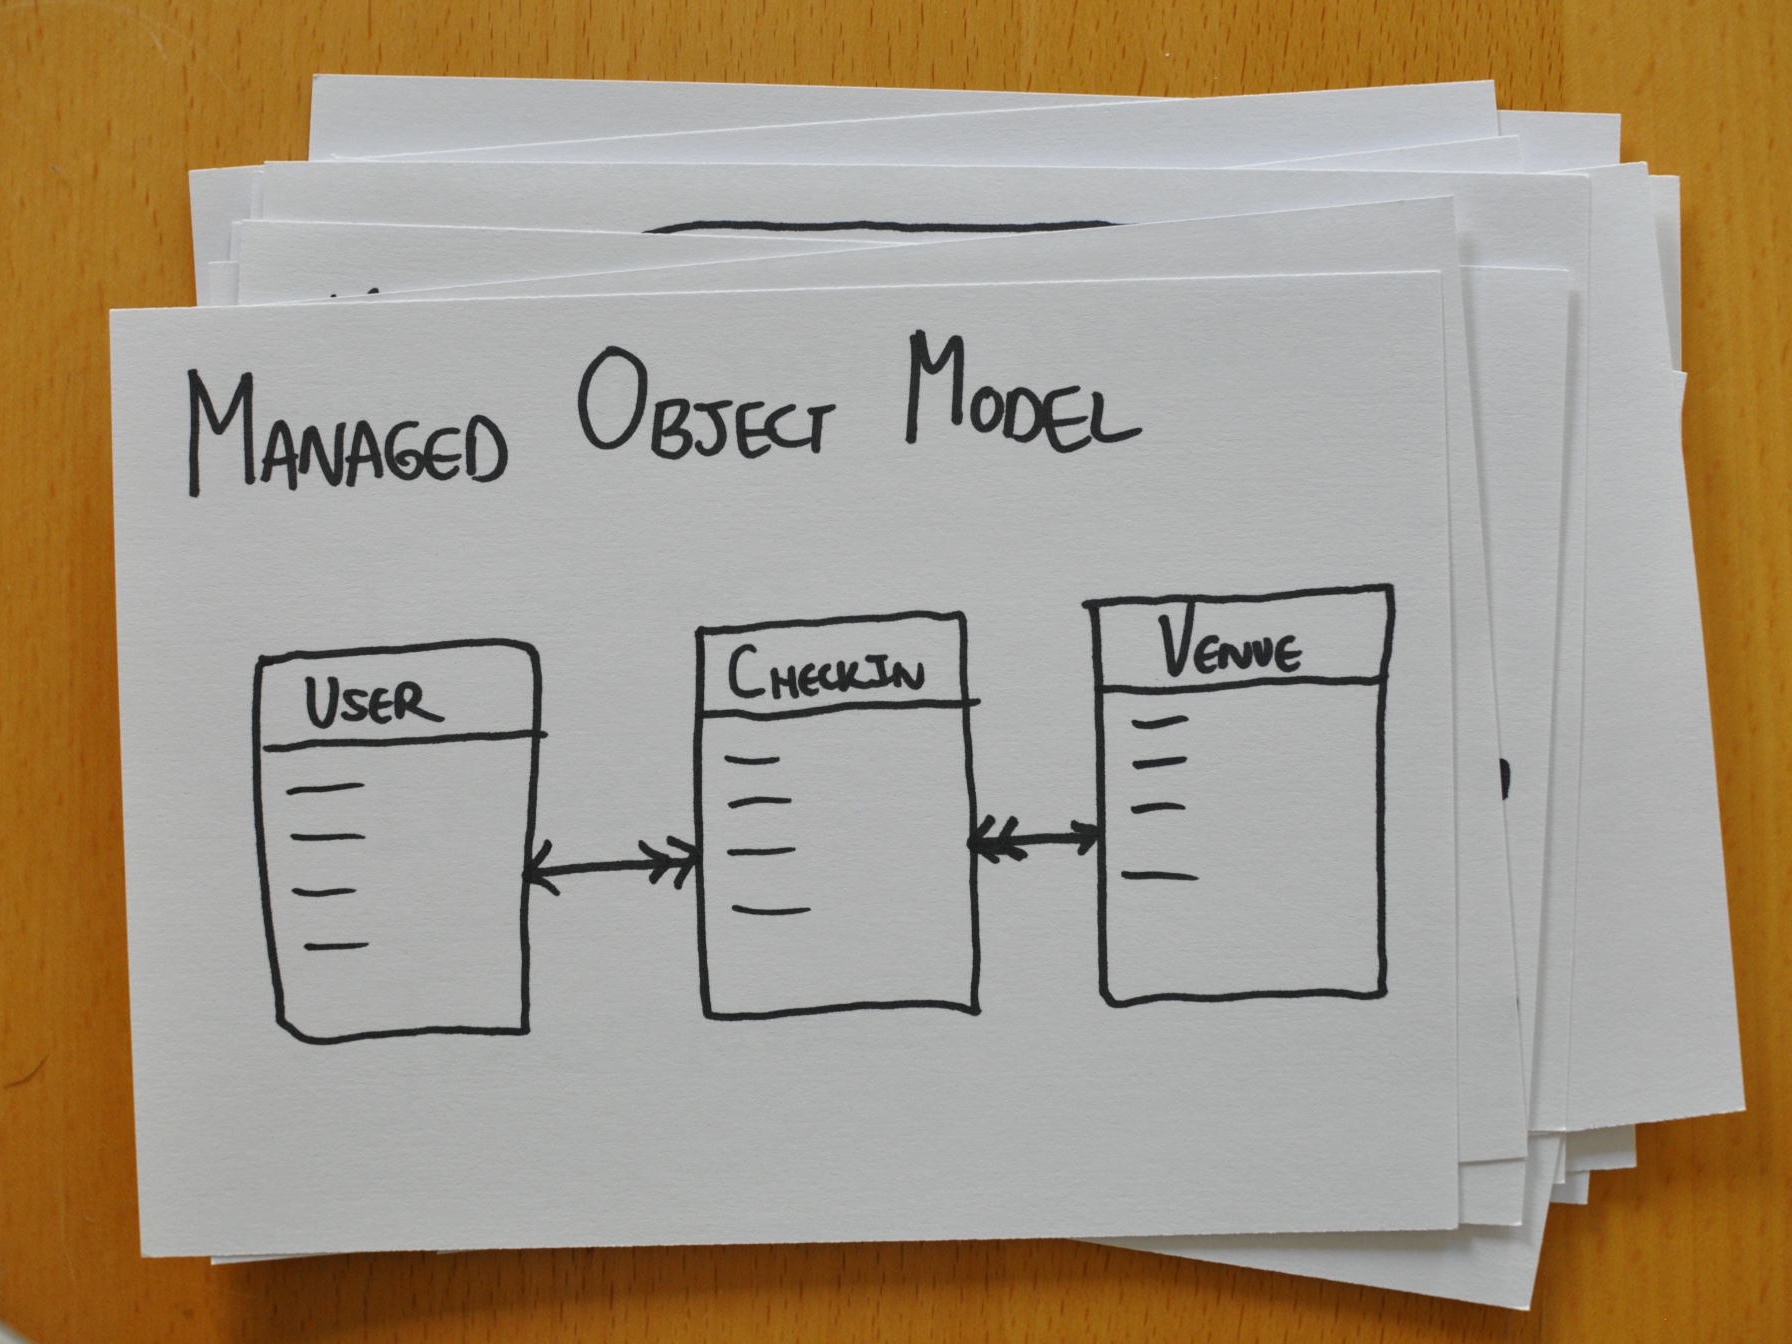 Managed Object Model
User
CheckIn
Venue